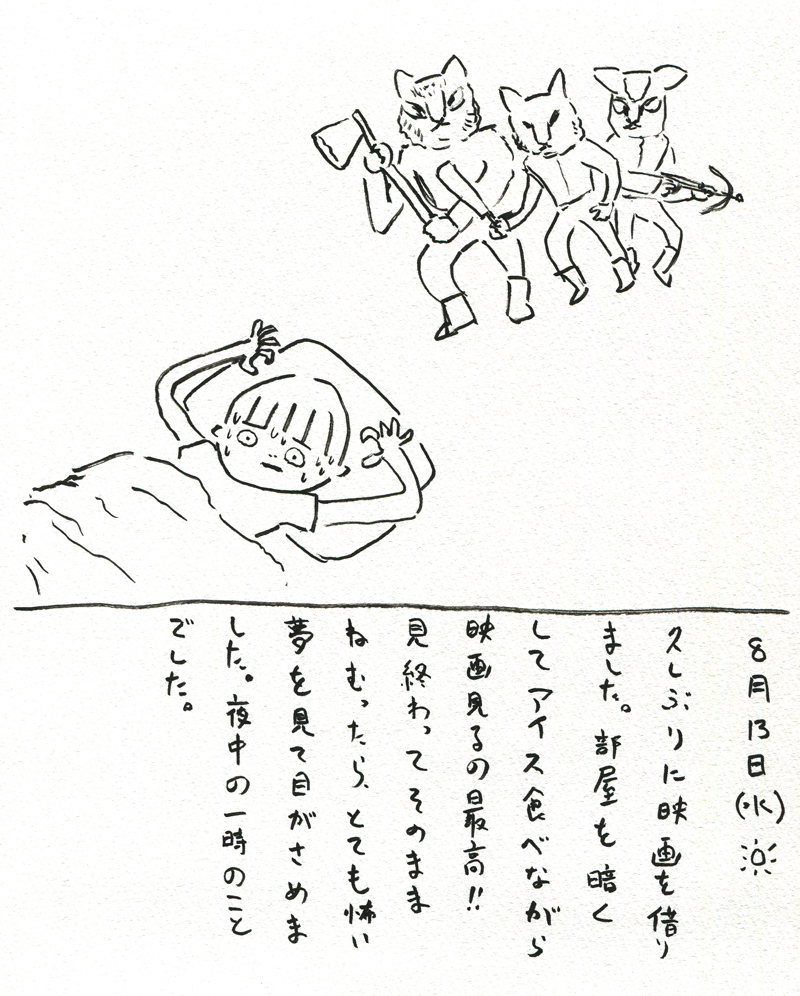 8月13日(水)
久しぶりに映画を借り
ました。部屋を暗く
してアイス食べながら
映画見るの最高!!
見終わってそのまま
ねむったら、とても怖い
夢を見て目がさめま
した。夜中の一時のこと
でした。